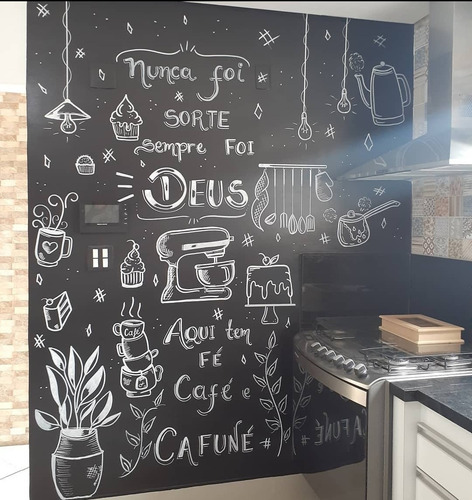 Nunca foi
SORTE
sempre FOI
DEUS
Café
AQUI tem
FÉ
Café e
CAFUNÉ